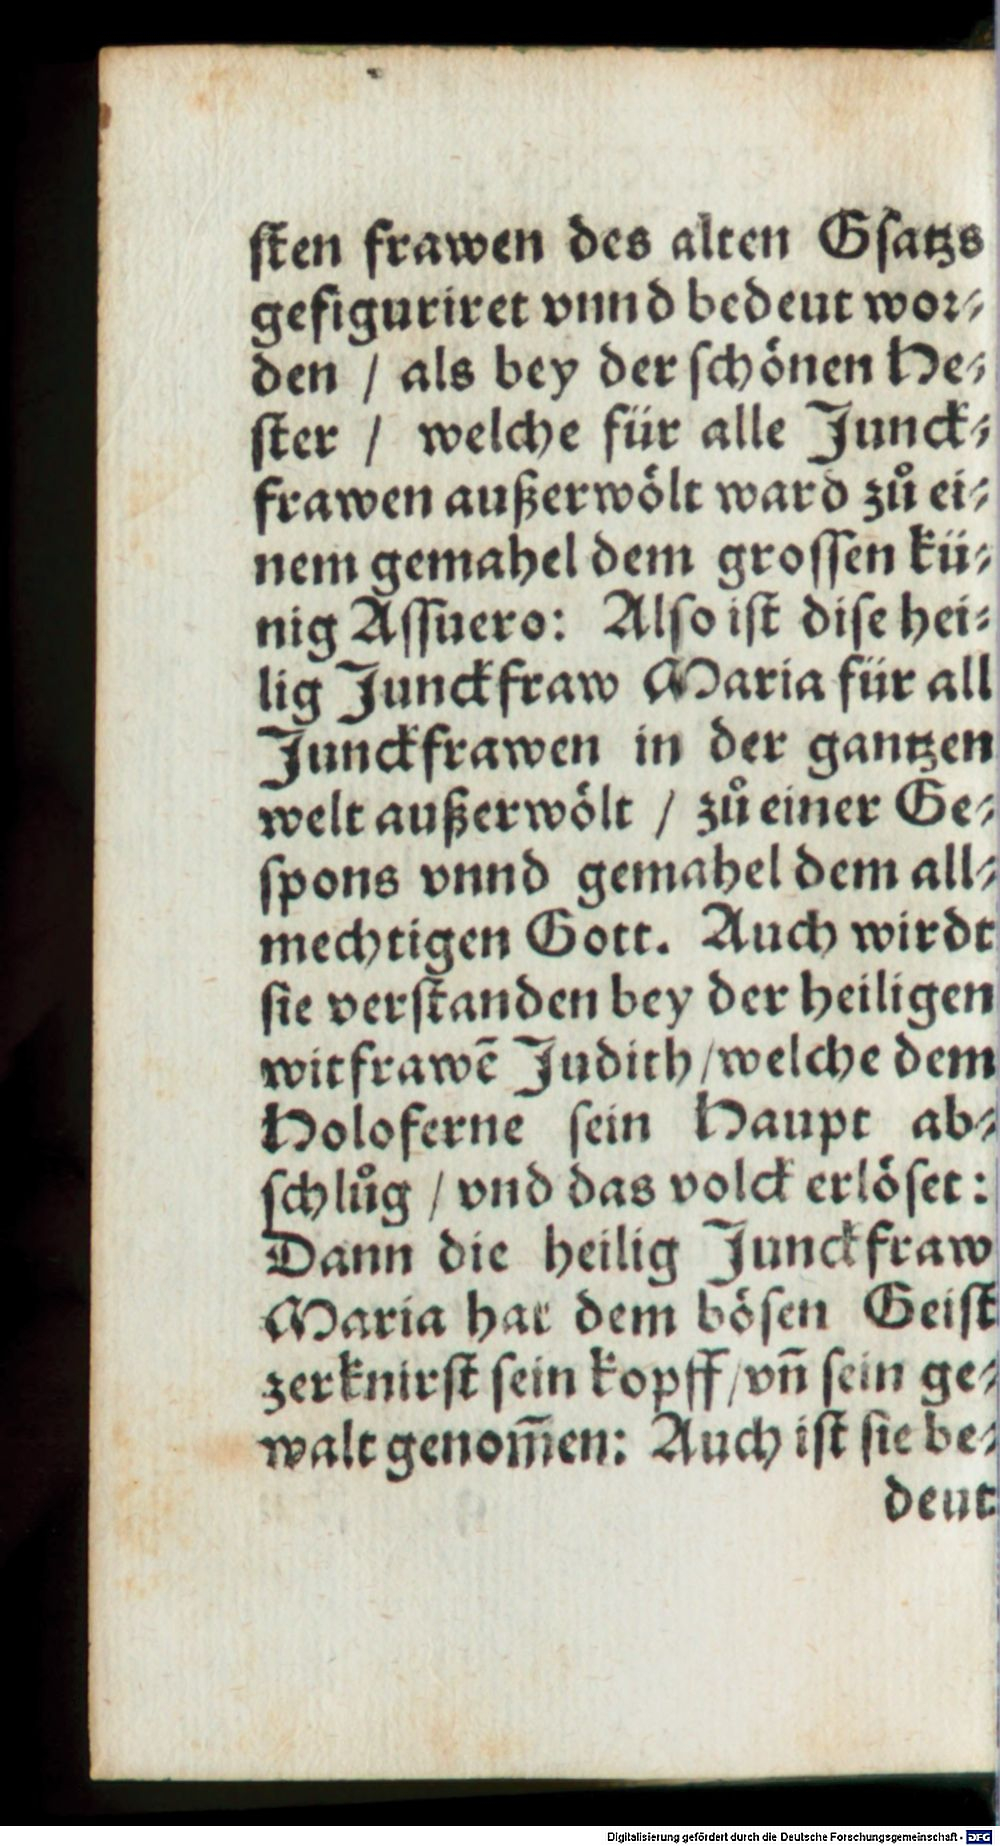 ſten frawen des alten Gſatzs
gefiguriret vnnd bedeut wor⸗
den / als bey der ſchönen He⸗
ſter / welche für alle Junck⸗
frawen außerwölt ward zů ei⸗
nem gemahel dem groſſen kü⸗
nig Aſſuero: Alſo iſt diſe hei⸗
lig Junckfraw Maria für all
Junckfrawen in der gantzen
welt außerwölt / zů einer Ge⸗
ſpons vnnd gemahel dem all⸗
mechtigen Gott. Auch wirdt
ſie verſtanden bey der heiligen
witfrawē Judith / welche dem
Holoferne ſein Haupt ab⸗
ſchlůg / vnd das volck erlöſet:
Dann die heilig Junckfraw
Maria hat dem böſen Geiſt
zerknirſt ſein kopff / vñ ſein ge⸗
walt genom̄en: Auch iſt ſie be⸗
deut
Digitalisierung gefördert durch die Deutsche Forschungsgemeinschaft - DFG